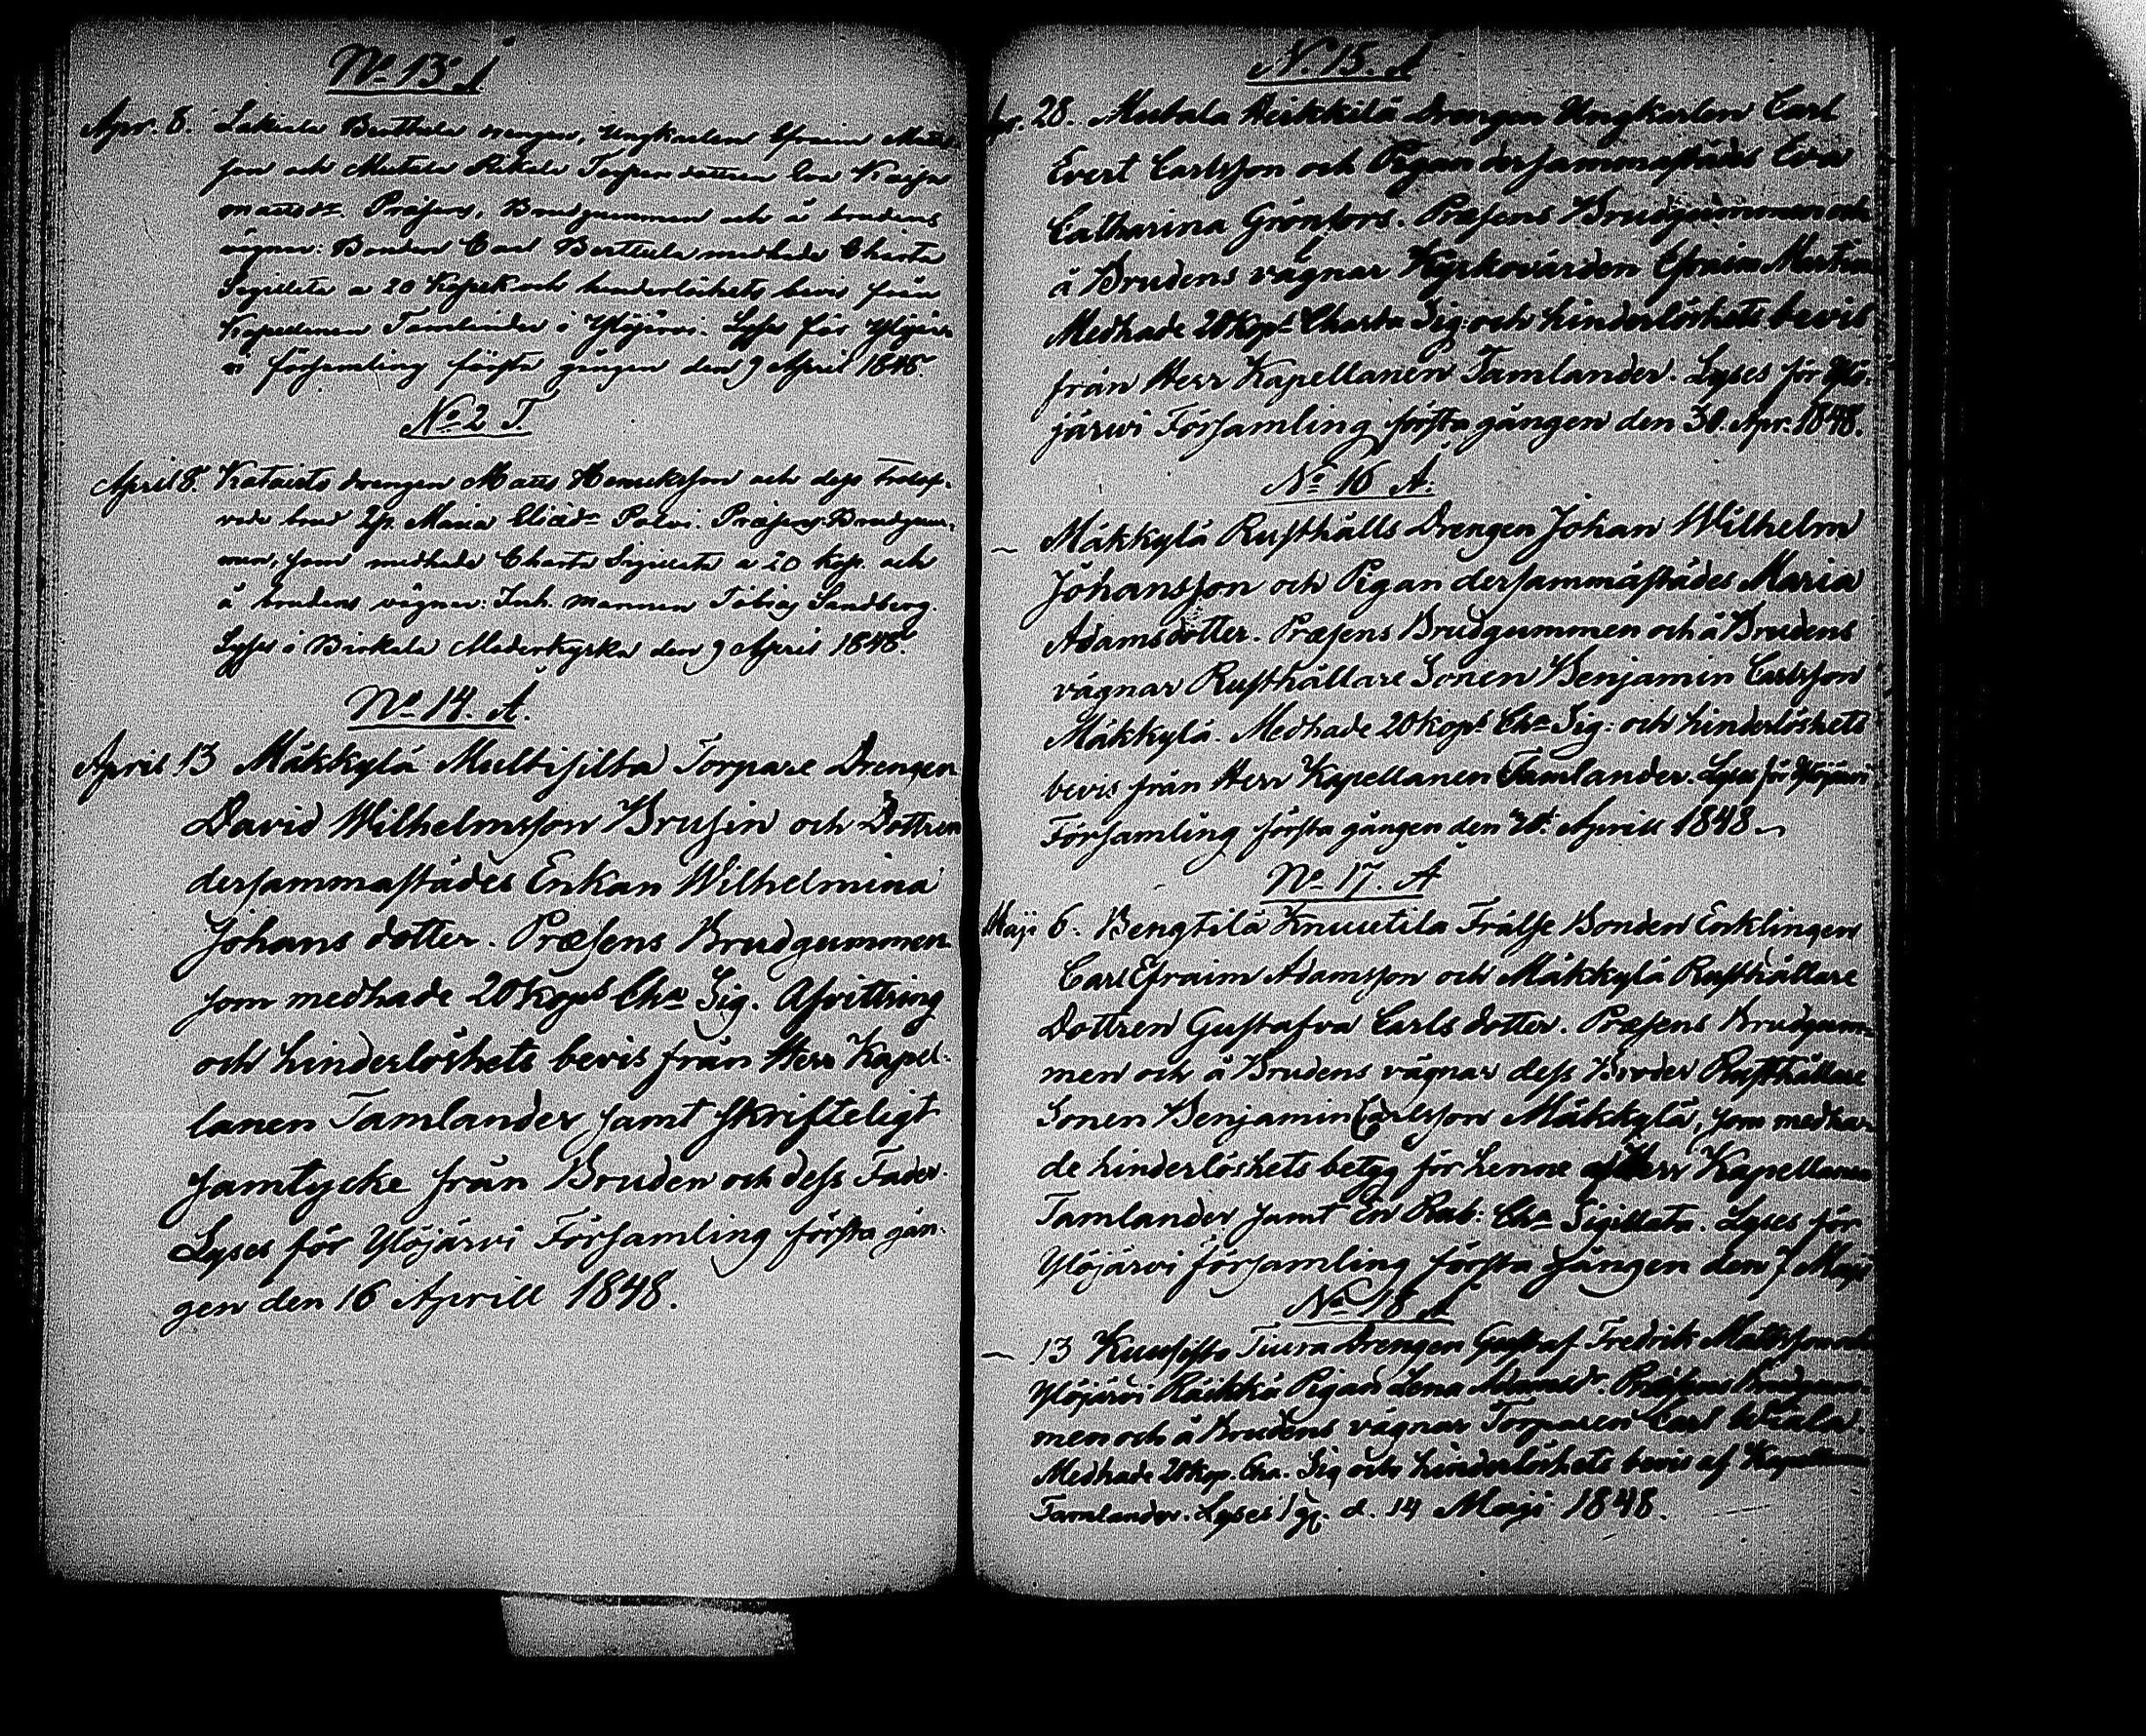 No 13. Å
Apr. 8. Lakiala Berttula drengen, Ungkarlen Efraim Matts-
son och Mutala Rikala Torparedottren Eva Kaisa
mattsdr. Præsens, Brudgummen och å brudens
vägnar: Bonden Carl Berttula medhade Charta
Sigillata a 20 Kopek och hinderlöshets bevis från
Kapellanen Tamlander i Ylöjärvi. Lyses för Ylöjär-
vi församling första gången den 9 April 1848.
No 2 T
April 8. drengen Matts Henricksson och dess trolof-
vade brud Maria Eliædr Palvi. Præsens: Brudgum-
men, som medhade Charta Sigillata a 20 kop. och
å brudens vägnar: Inh. mannen Tobias Sandberg.
Lyses i Birkala Moderkyrka den 9 April 1848.
No 14. Å.
April 13 Mäkkylä Multisilta Torpare Drengen
David Wilhelmsson Brusin och Dottren
dersammastädes Enkan Wilhelmina
Johans dotter. Præsens Brudgummen
som medhade 20 kops Cha Sig. Afvittring
och hinderlöshets bevis från Herr Kapel-
lanen Tamlander samt skrifteligt
samtycke från Bruden och dess Fader.
Lyses för Ylöjärvi Församling första gån-
gen den 16 Aprill 1848.
N. 15. Å
Apr. 28. Mutala Heikkilä Drengen Ungkarlen Carl
Evert Carlsson och Pigan dersammastäds Eva
Catharina Grönfors. Præsens Brudgummen och
å Brudens vägnar Kyrkovärden Efraim
Medhade 20 kops Charta Sig: och hinderlöshets bevis
från Herr Kapellanen Tamlander. Lyses för Ylö-
järwi Församling första gången den 30. Apr. 1848.
No 16 Å.
~ Mäkkylä Rusthålls Drengen Johan Wilhelm
Johansson och Pigan dersammastädes Maria
Adamsdotter. Præsens Brudgummen och å Brudens
vägnar Rusthållare Sonen Benjamin Carlsson
Mäkkylä. Medhade 20 kops Cha Sig: och hinderlöshets
bevis från Herr Kapellanen Tamlander. Lyses för Ylöjärvi
Församling första gången den Aprill 1848.
No 17. Å
Maji 6. Bengtilä Knuutila Frälse Bonden Enklingen
Carl Efraim Adamsson och Mäkkylä Rusthållare
Dottren Gustafva Carls dotter. Præsens Brudgum-
men och å Brudens vägnar dess Broder Rusthållare
Sonen Benjamin Carlsson Mäkkylä, som medha-
de hinderlöshets betyg för henne af Herr Kapellanen
Tamlander samt En Rub: Cha Sigillata. Lyses för
Ylöjärvi församling första gången den 7 Maji
No 18 Å
~ 13 Kuusisto Tiura Drengen Gustaf Fredrik Mattsson och
Ylöjärvi Räikkä Pigan Lena Præsens Brudgum-
men och å Brudens vägnar Torparen Carl
Medhade 20 kop. Cha. Sig och hinderlöshets bevis af Kapellan
Tamlander. Lyses 1 g. d. 14 Maji 1848.